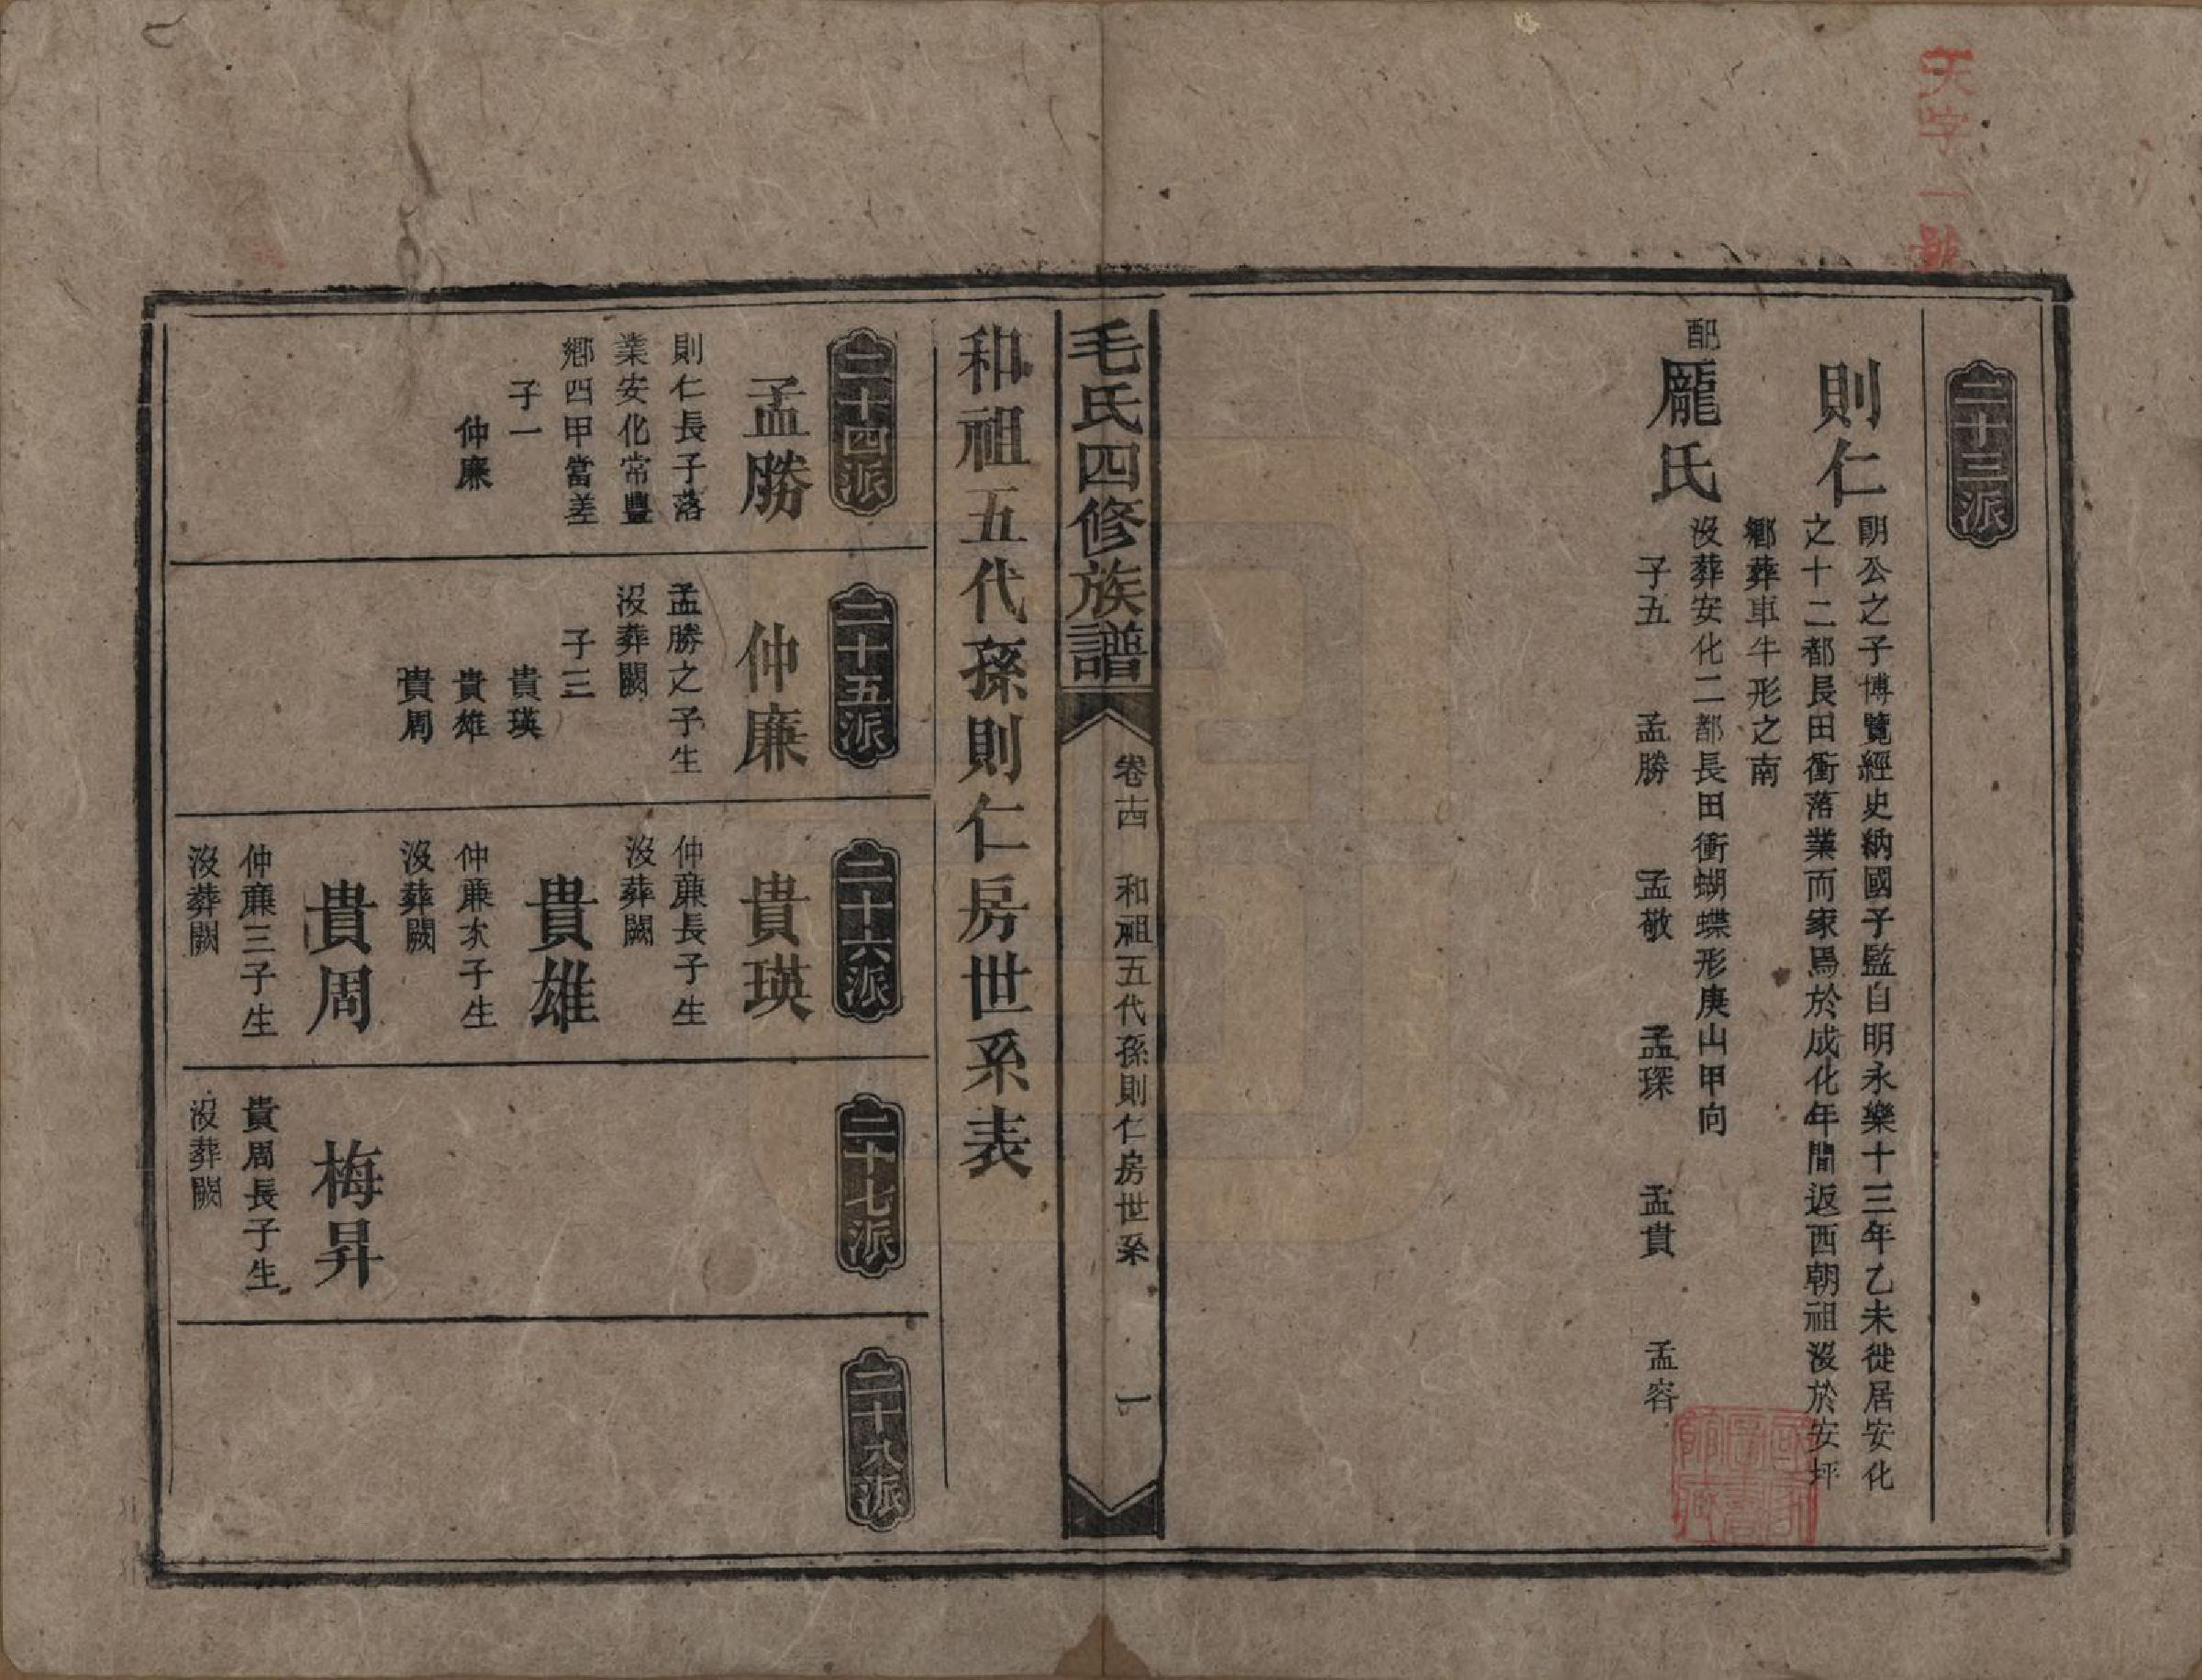 天字一號
二十三派
則仁
明公之子博覽經史納國子監自明永樂十三年乙未徙居安化
之十二都長田衝落業而家焉於成化年間返西朝祖沒於安坪
鄉葬車牛形之南
配龐氏
沒葬安化二都長田衝蝴蝶形庚山甲向
子五 孟勝 孟敬 孟琛 孟貴 孟容
毛氏四修族譜
卷十四 和祖五代孫則仁房世系 一
和祖五代孫則仁房世系表
二十四派
孟勝
則仁長子落
業安化常豐
鄉四甲當差
子一
仲廉
二十五派
仲廉
孟勝之子生
沒葬闕
子三
貴瑛
貴雄
貴周
二十六派
貴瑛
仲廉長子生
沒葬闕
貴雄
仲廉次子生
沒葬闕
貴周
仲廉三子生
沒葬闕
二十七派
梅昇
貴周長子生
沒葬闕
二十八派